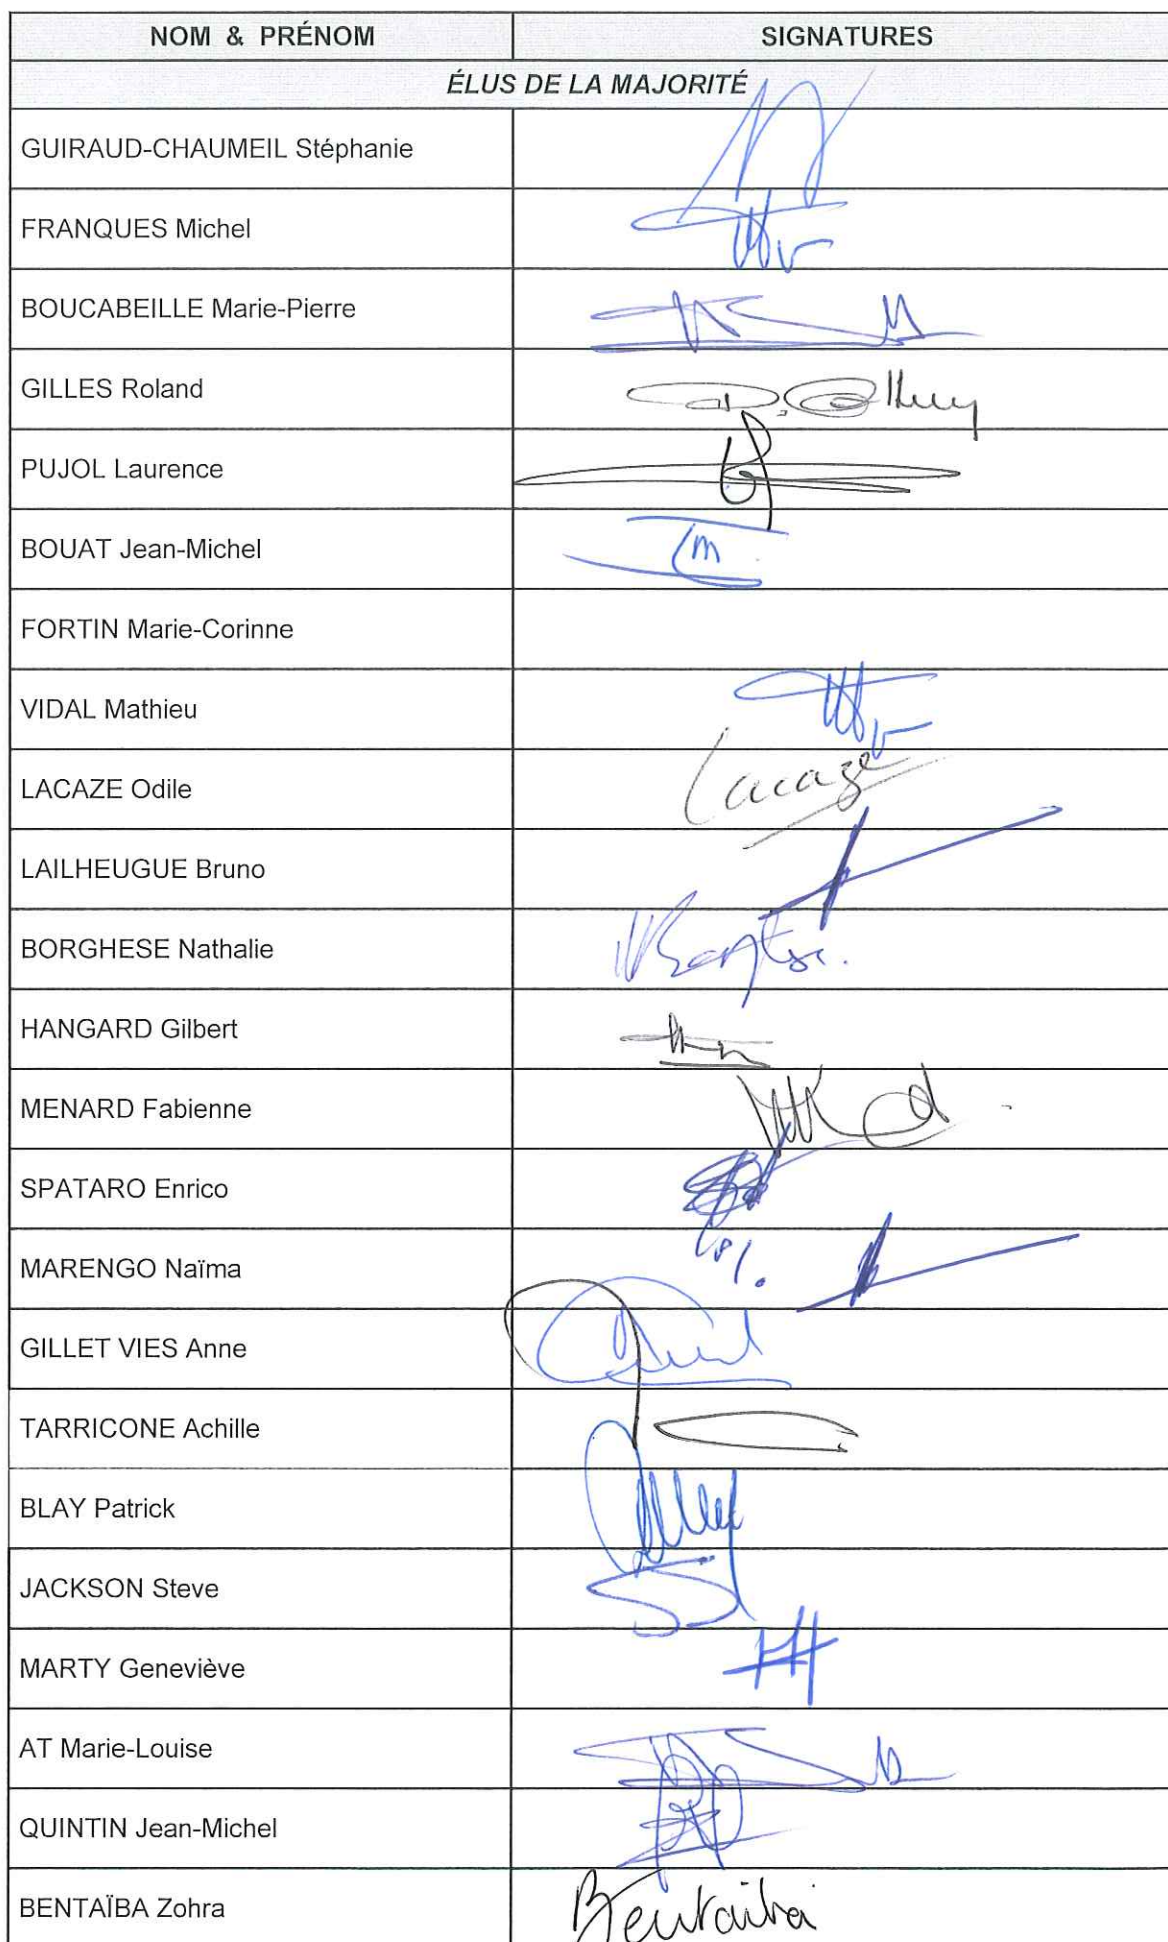 NOM & PRÉNOM SIGNATURES
ÉLUS DE LA MAJORITÉ
GUIRAUD-CHAUMEIL Stéphanie
FRANQUES Michel
BOUCABEILLE Marie-Pierre
GILLES Roland
PUJOL Laurence
BOUAT Jean-Michel
FORTIN Marie-Corinne
VIDAL Mathieu
LACAZE Odile Lacaze
LAILHEUGUE Bruno
BORGHESE Nathalie
HANGARD Gilbert
MENARD Fabienne
SPATARO Enrico
MARENGO Naïma
GILLET VIES Anne
TARRICONE Achille
BLAY Patrick
JACKSON Steve
MARTY Geneviève
AT Marie-Louise
QUINTIN Jean-Michel
BENTAÏBA Zohra Bentaïba